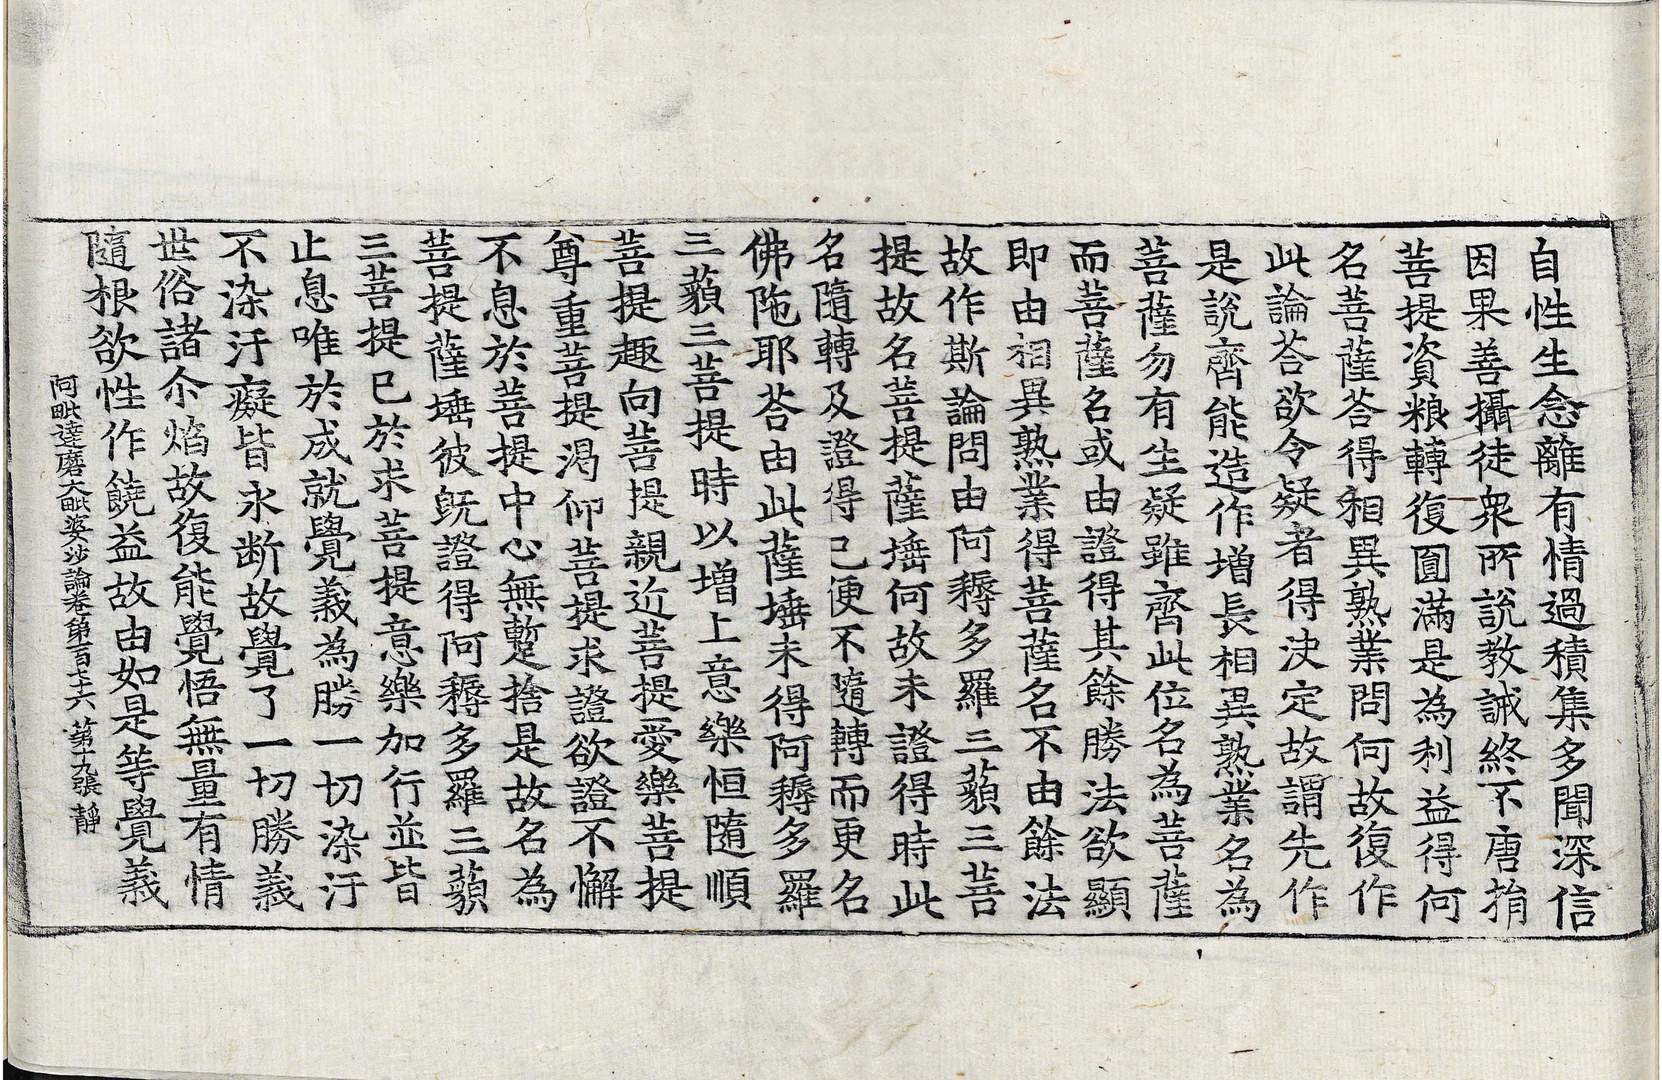 自性生念離有情過積集多聞深信
因果善攝徒衆所說教誡終不唐捐
菩提資粮轉復圓滿是為利益得何
名菩薩荅得相異熟業問何故復作
此論荅欲令疑者得決定故謂先作
是說齊能造作增長相異熟業名為
菩薩勿有生疑雖齊此位名為菩薩
而菩薩名或由證得其餘勝法欲顯
即由相異熟業得菩薩名不由餘法
故作斯論問由阿耨多羅三藐三菩
提故名菩提薩埵何故未證得時此
名隨轉及證得已便不隨轉而更名
佛陁耶荅由此薩埵未得阿耨多羅
三藐三菩提時以增上意樂恒隨順
菩提趣向菩提親近菩提愛樂菩提
尊重菩提渴仰菩提求證欲證不懈
不息於菩提中心無暫捨是故名為
菩提薩埵彼旣證得阿耨多羅三藐
三菩提已於求菩提意樂加行並皆
止息唯於成就覺義為勝一切染汙
不染汙癡皆永断故覺了一切勝義
世俗諸尒焰故復能覺悟無量有情
隨根欲性作饒益故由如是等覺義
阿毗達磨大毗婆沙論卷第一百七十六 第十九張 靜